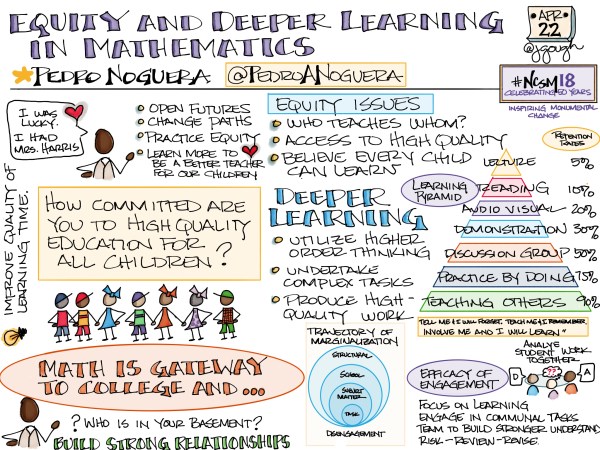 EQUITY AND DEEPER LEARNING
IN MATHEMATICS
APR
22
@jgough
PEDRO NOGUERA @PEDROANOGUERA
#NCSM18
CELEBRATING 50 YEARS
INSPIRING MONUMENTAL
CHANGE
I WAS
LUCKY.
I HAD
MRS. HARRIS
OPEN FUTURES
CHANGE PATHS
PRACTICE EQUITY
LEARN MORE TO
BE A BETTER TEACHER
FOR OUR CHILDREN
EQUITY ISSUES
WHO TEACHES WHOM?
ACCESS TO HIGH QUALITY
BELIEVE EVERY CHILD
CAN LEARN
RETENTION
RATES
LEARNING
PYRAMID
LECTURE 5%
READING 10%
AUDIO VISUAL 20%
DEMONSTRATION 30%
DISCUSSION GROUP 50%
PRACTICE BY DOING 75%
TEACHING OTHERS 90%
TELL ME & I WILL FORGET. TEACH ME & I REMEMBER.
INVOLVE ME AND I WILL LEARN"
IMPROVE QUALITY OF
LEARNING TIME.
HOW COMMITTED ARE
YOU TO HIGH QUALITY
EDUCATION FOR
ALL CHILDREN?
DEEPER
LEARNING
UTILIZE HIGHER
ORDER THINKING
UNDERTAKE
COMPLEX TASKS
PRODUCE HIGH-
QUALITY WORK
MATH IS GATEWAY
TO COLLEGE AND...
? WHO IS IN YOUR BASEMENT?
BUILD STRONG RELATIONSHIPS
TRAJECTORY OF
MARGINALIZATION
STRUCTURAL
SCHOOL
SUBJECT
MATTER
TASK
DISENGAGEMENT
ANALYZE
STUDENT WORK
TOGETHER
D
??
A
EFFICACY OF
ENGAGEMENT
FOCUS ON LEARNING
ENGAGE IN COMMUNAL TASKS
TEAM TO BUILD STRONGER UNDERSTAND
RISK-REVIEW-REVISE.